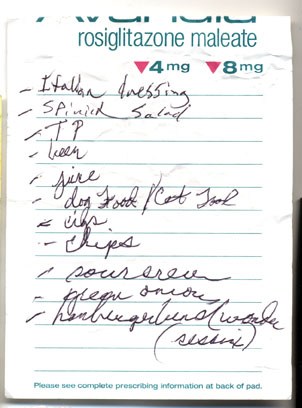 Avandia
rosiglitazone maleate
▼4mg ▼8mg
- Itallan Dressing
- Spinich Salad
- TP
- beer
- juice
- dog Food / Cat Food
- cigs
- Chips
- sour cream
- green onion
- hamburger buns (wonder
(sessime)
Please see complete prescribing information at back of pad.